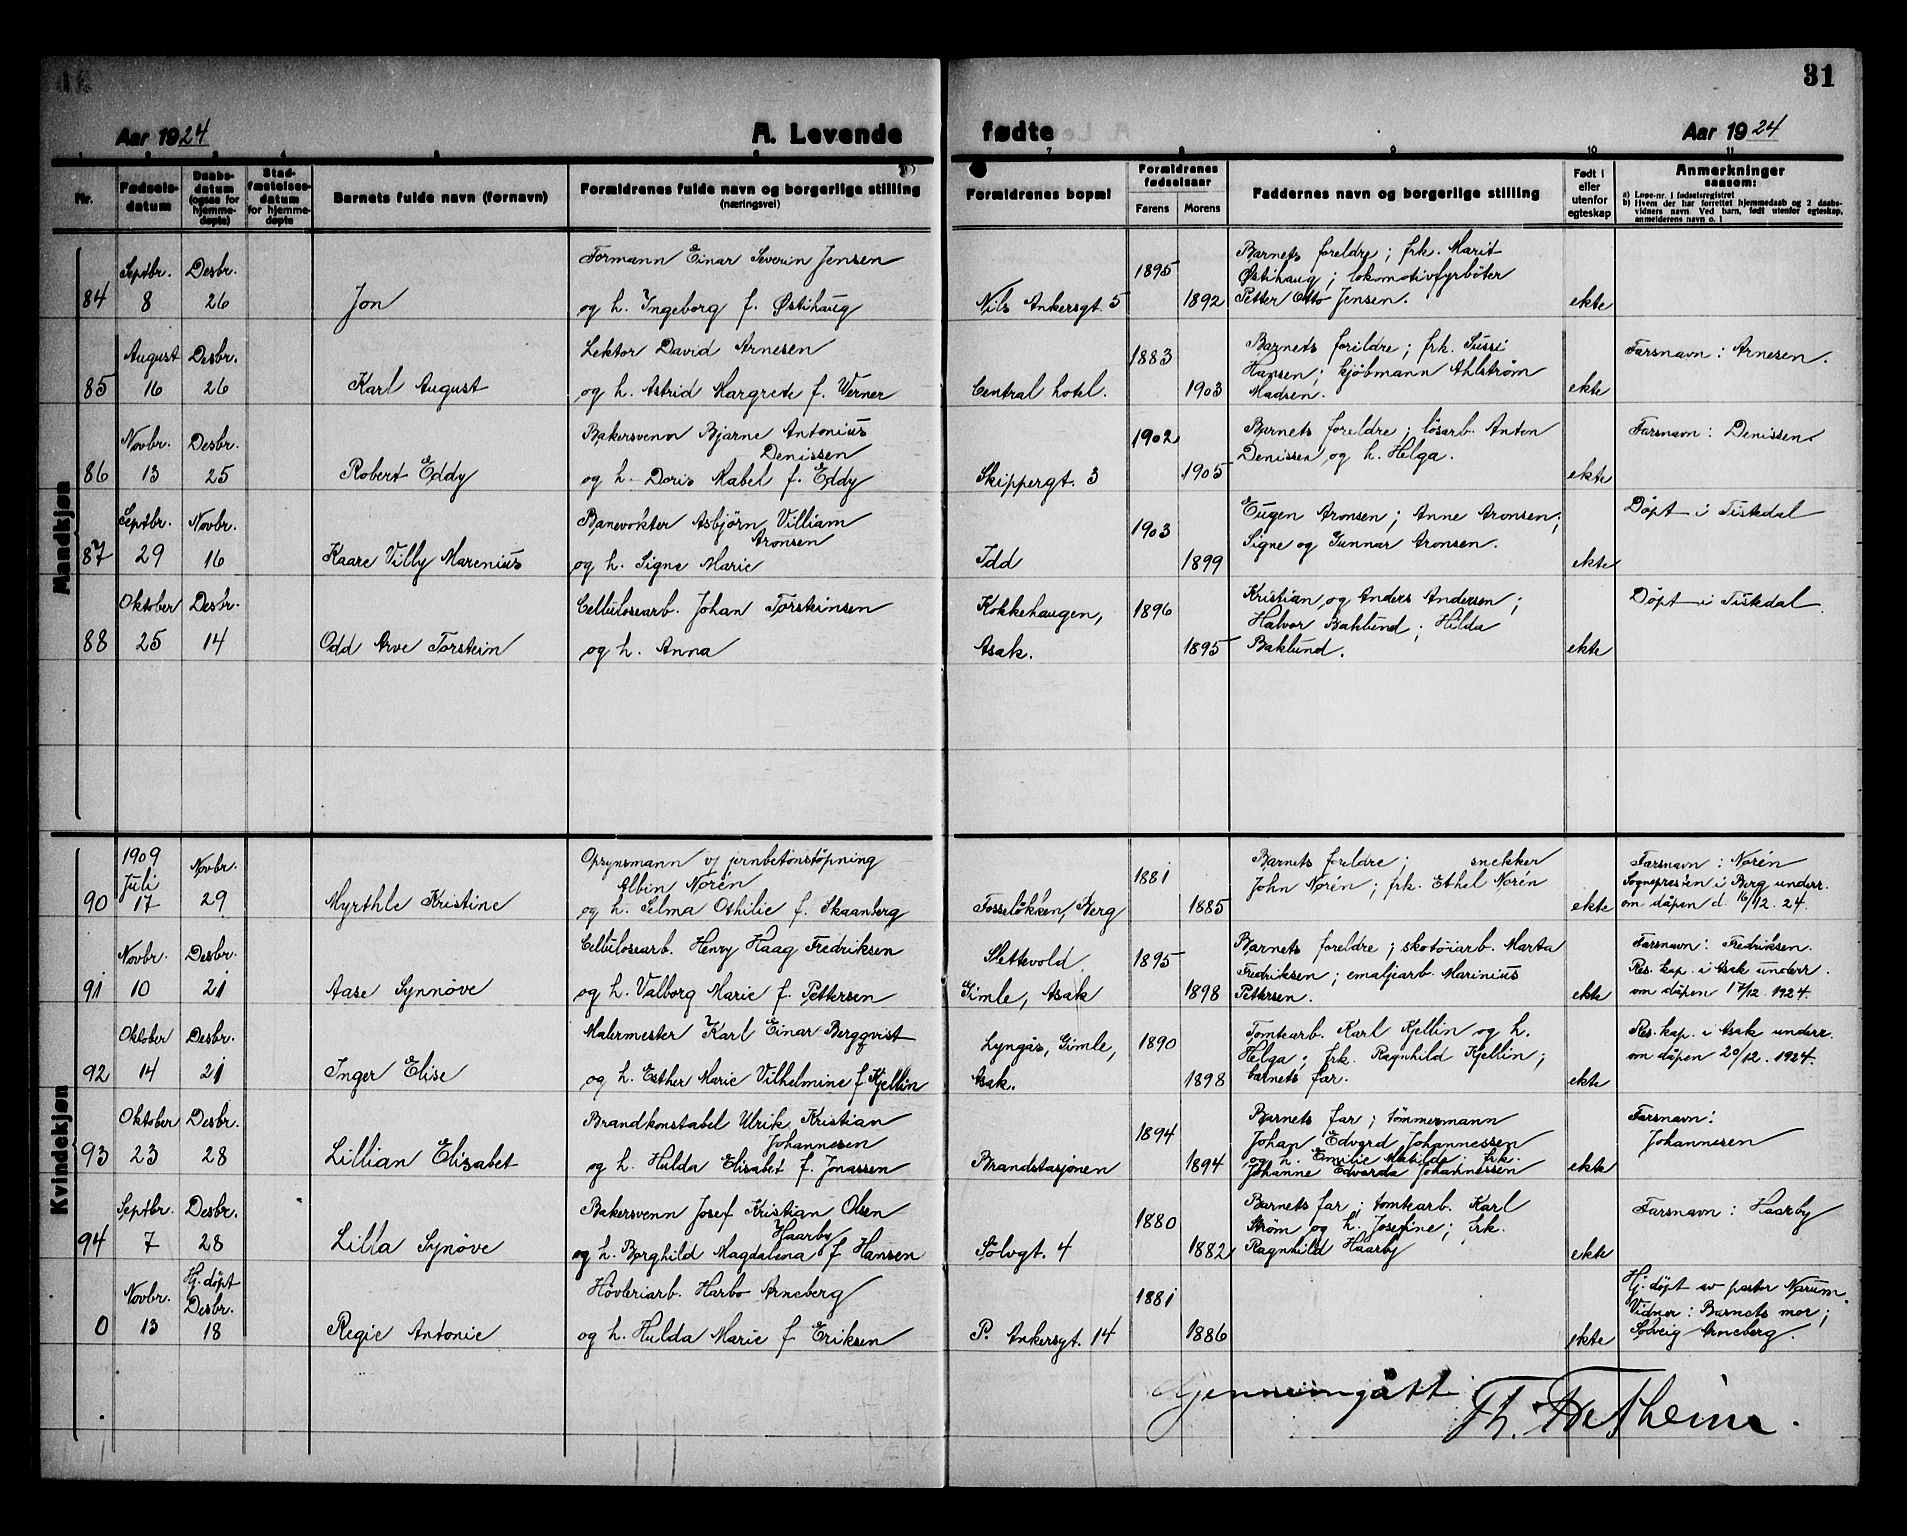 31
Aar 1924
A. Levende
fødte
Aar 1924
1 2 3 4 5 6 7 8 9 10 11
Nr.
Fødsels-
datum
Daabs-
datum
(ogsaa for
hjemme-
døpte)
Stad-
fæstelses-
datum
for hjemme-
døpte
Barnets fulde navn (fornavn)
Forældrenes fulde navn og borgerlige stilling
(næringsvei)
Forældrenes bopæl
Forældrenes
fødselsaar
Farens
Morens
Faddernes navn og borgerlige stilling
Født i
eller
utenfor
egteskap
Anmerkninger
saasom:
a) Løpe-nr. i fødselsregistret
b) Hvem der har forrettet hjemmedaab og 2 daabs-
vidners navn. Ved barn, født utenfor egteskap,
anmelderens navn o. l
Mandkjøn
84
Septbr.
8
Desbr.
26
Jon
Formann Einar Severin Jensen
og h. Ingeborg f. Østihaug
Nils Ankersgt. 5
1895
1892
Barnets foreldre; frk. Marit
Østihaug; lokomotivfyrbøter
Petter Otto Jensen.
ekte
85
August
16
Desbr.
26
Karl August
Lektor David Arnesen
og h. Astrid Margrete f. Werner
Central hotel.
1883
1903
Barnets foreldre; frk. Sussi
Hansen; kjøbmann Ahlstrøm
Madsen.
ekte
Farsnavn: Arnesen.
86
Novbr.
13
Desbr.
25
Robert Eddy
Bakersvenn Bjarne Antonius
Denissen
og h. Doris Mabel f. Eddy
Skippergt. 3
1902
1905
Barnets foreldre; løsarb. Anton
Denissen og h. Helga.
ekte
Farsnavn: Denissen.
87
Septbr.
29
Novbr.
16
Kaare Villy Marenius
Banevokter Asbjørn Villiam
Aronsen
og h. Signe Marie
Idd
1903
1899
Eugen Aronsen; Anne Aronsen;
Signe og Gunnar Aronsen.
ekte
Døpt i Tistedal
88
Oktober
25
Desbr.
14
Odd Arve Torstein
Cellulosearb. Johan Torsteinsen
og h. Anna
Kokkehaugen,
Asak.
1896
1895
Kristian og Anders Andersen;
Halvor Baklund; Hilda
Baklund.
ekte
Døpt i Tistedal.
Kvindekjøn
90
1909
Juli
17
Novbr.
29
Myrthle Kristine
Opsynsmann v/ jernbetonstøpning
Albin Norén
og h. Selma Othilie f. Skaanberg
Fosseløkken, Berg
1881
1885
Barnets foreldre; snekker
John Norén; frk. Ethel Norén
ekte
Farsnavn: Norén
Sognepresten i Berg underr.
om dåpen d. 16/12. 24.
91
Novbr.
10
Desbr.
21
Aase Synnøve
Cellulosearb. Henry Haag Fredriksen
og h. Valborg Marie f. Pettersen
Slettevold
Gimle, Asak
1895
1898
Barnets foreldre; skotøiarb. Marta
Fredriksen; emaljearb. Marinius
Pettersen.
ekte
Farsnavn: Fredriksen.
Res. kap. i Asak underr.
om dåpen 17/12. 1924.
92
Oktober
14
Desbr.
21
Inger Elise
Malermester Karl Einar Bergqvist
og h. Esther Marie Vilhelmine f. Kjellin
Lyngås, Gimle,
Asak.
1890
1898
Tomtearb. Karl Kjellin og h.
Helga; frk. Ragnhild Kjellin;
barnets far.
ekte
Res. kap. i Asak underr.
om dåpen 20/12. 1924.
93
Oktober
23
Desbr.
28
Lillian Elisabet
Brandkonstabel Ulrik Kristian
Johannesen
og h. Hulda Elisabet f. Jonassen
Brandstasjonen
1894
1894
Barnets far; tømmermann
Johan Edvard Johannessen
og h. Emilie Matilde; frk.
Johanne Edvarda Johannessen
ekte
Farsnavn:
Johannesen
94
Septbr.
7
Desbr.
28
Lilla Synøve
Bakersvenn Josef Kristian Olsen
Haarby
og h. Borghild Magdalena f. Hansen
Sølvgt. 4
1880
1882
Barnets far; tomtearb. Karl
Strøm og h. Josefine; frk.
Ragnhild Haarby
ekte
Farsnavn: Haarby
0
Novbr.
13
Hj. døpt
Desbr.
18
Regie Antonie
Høvleriarb. Harbo Arneberg
og h. Hulda Marie f. Eriksen
P. Ankersgt. 14
1881
1886
ekte
Hj. døpt av pastor Njarum.
Vidner: Barnets mor;
Solveig Arneberg.
Gjennemgått
Th. Fretheim.